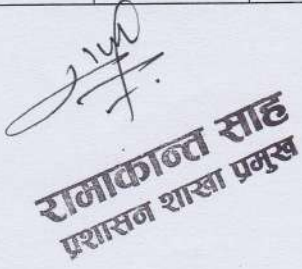 रामाकान्त साह
प्रशासन शाखा प्रमुख